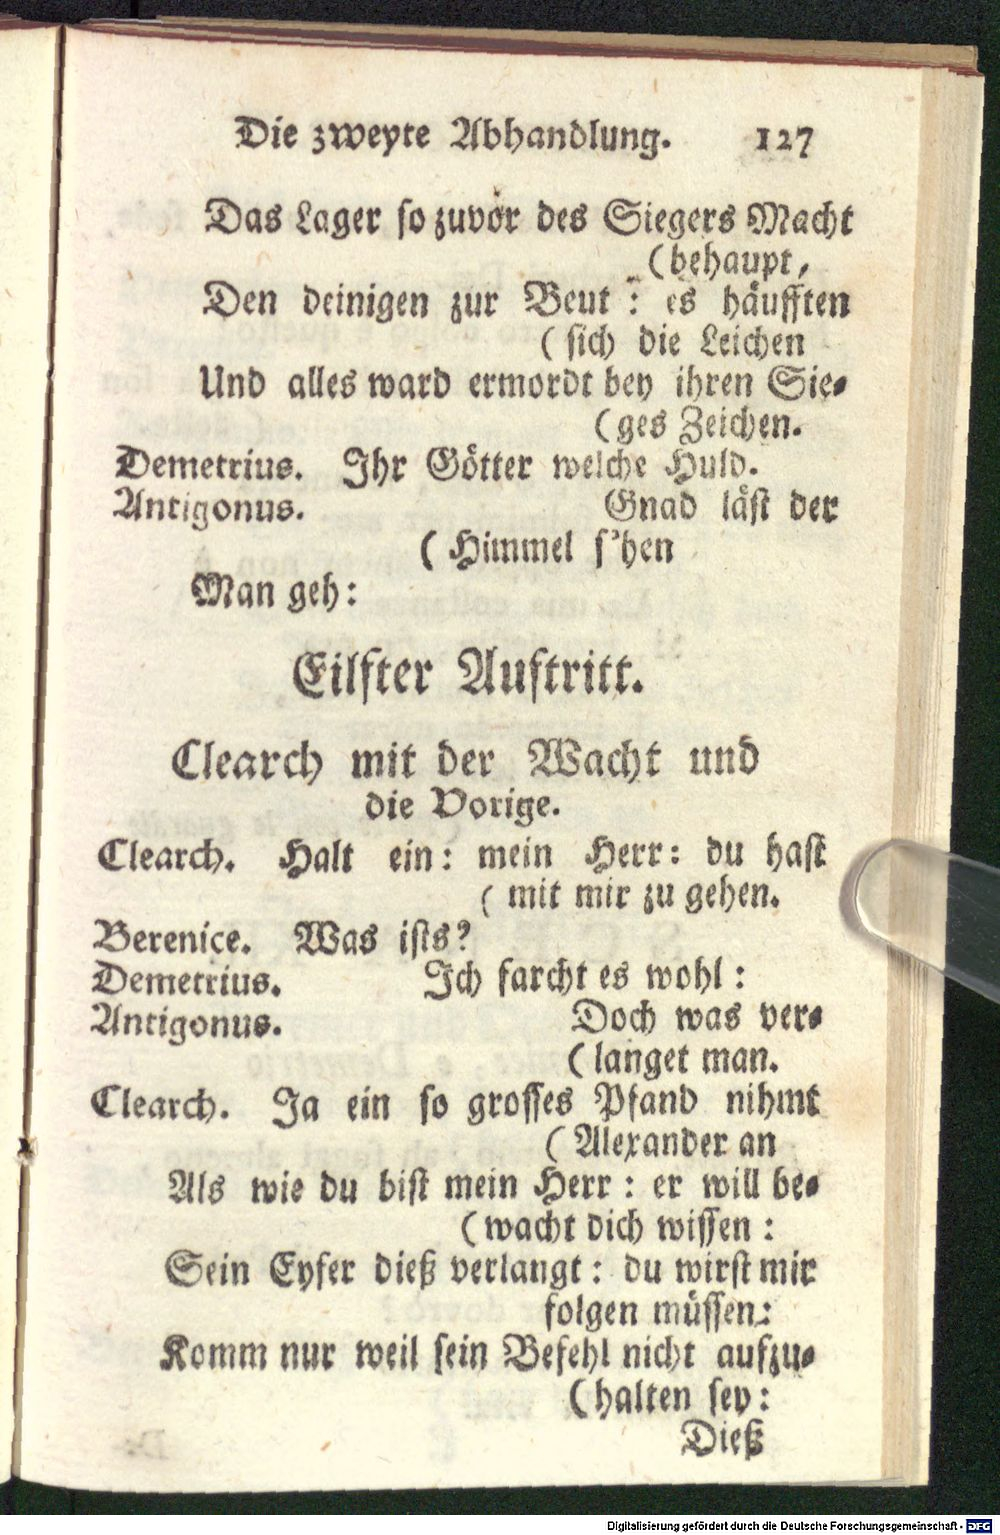 Die zweyte Abhandlung. 127
Das Lager so zuvor des Siegers Macht
(behaupt,
Den deinigen zur Beut : es häufften
( sich die Leichen
Und alles ward ermordt bey ihren Sie-
(ges Zeichen.
Demetrius. Ihr Götter welche Huld.
Antigonus. Gnad läst der
( Himmel s'hen
Man geh:
Eilfter Auftritt.
Clearch mit der Wacht und
die Vorige.
Clearch. Halt ein: mein Herr: du hast
( mit mir zu gehen.
Berenice. Was ists?
Demetrius. Ich farcht es wohl :
Antigonus. Doch was ver-
(langet man.
Clearch. Ja ein so grosses Pfand nihmt
( Alexander an
Als wie du bist mein Herr : er will be-
(wacht dich wissen :
Sein Eyfer dieß verlangt : du wirst mir
folgen müssen:
Komm nur weil sein Befehl nicht aufzu-
(halten sey:
Dieß
Digitalisierung gefördert durch die Deutsche Forschungsgemeinschaft - DFG